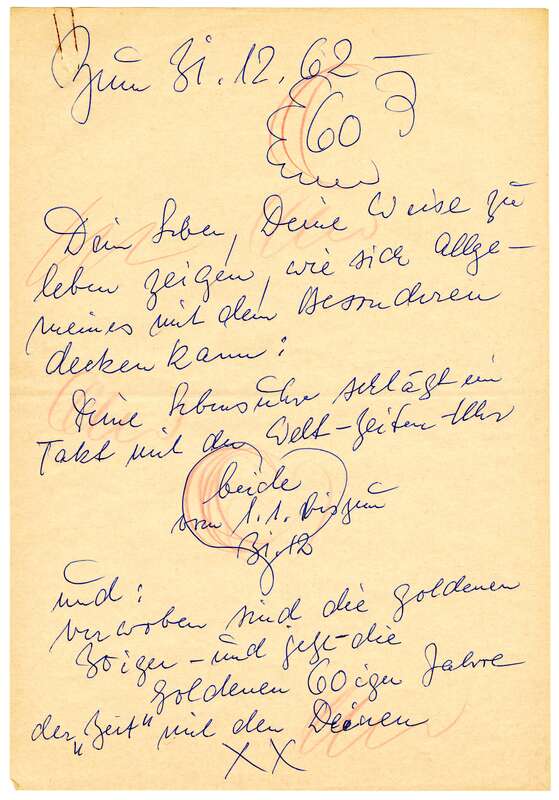 Zum 31.12.62 –
60
Dein Leben, Deine Weise zu
leben zeigen, wie sich Allge-
meines mit dem Besonderen
decken kann:
Deine Lebensuhr schlägt im
Takt mit der Welt-Zeiten-Uhr
beide
vom 1.1. bis zum
31.12
und:
verwoben sind die goldenen
30iger – und jetzt die
goldenen 60iger Jahre
der „Zeit“ mit den Deinen
XX